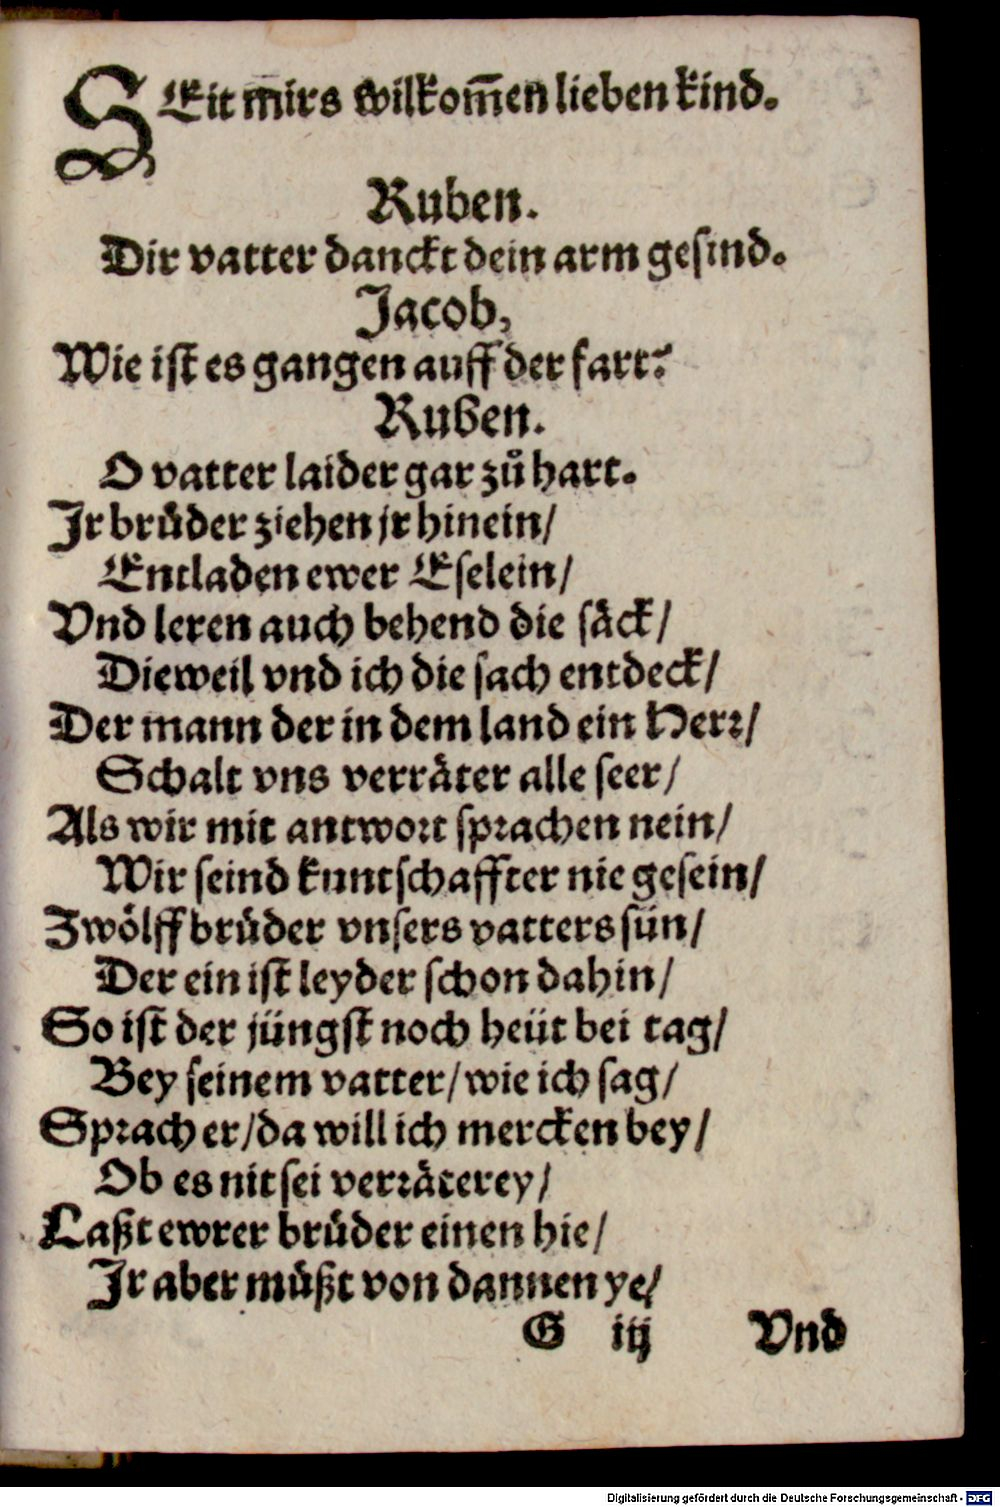 SEit mirs wilkom̃en lieben kind.
Ruben.
Dir vatter danckt dein arm gesind.
Jacob,
Wie ist es gangen auff der fart?
Ruben.
O vatter laider gar zů hart.
Jr brůder ziehen jr hinein/
Entladen ewer Eselein/
Vnd leren auch behend die säck/
Dieweil vnd ich die sach entdeck/
Der mann der in dem land ein Herr/
Schalt vns verräter alle seer/
Als wir mit antwort sprachen nein/
Wir seind kuntschaffter nie gesein/
Zwölff brůder vnsers vatters sün/
Der ein ist leyder schon dahin/
So ist der jüngst noch heüt bei tag/
Bey seinem vatter/wie ich sag/
Sprach er/da will ich mercken bey/
Ob es nit sei verräterey/
Laßt ewrer brůder einen hie/
Jr aber müßt von dannen ye/
G iij Vnd
Digitalisierung gefördert durch die Deutsche Forschungsgemeinschaft - DFG